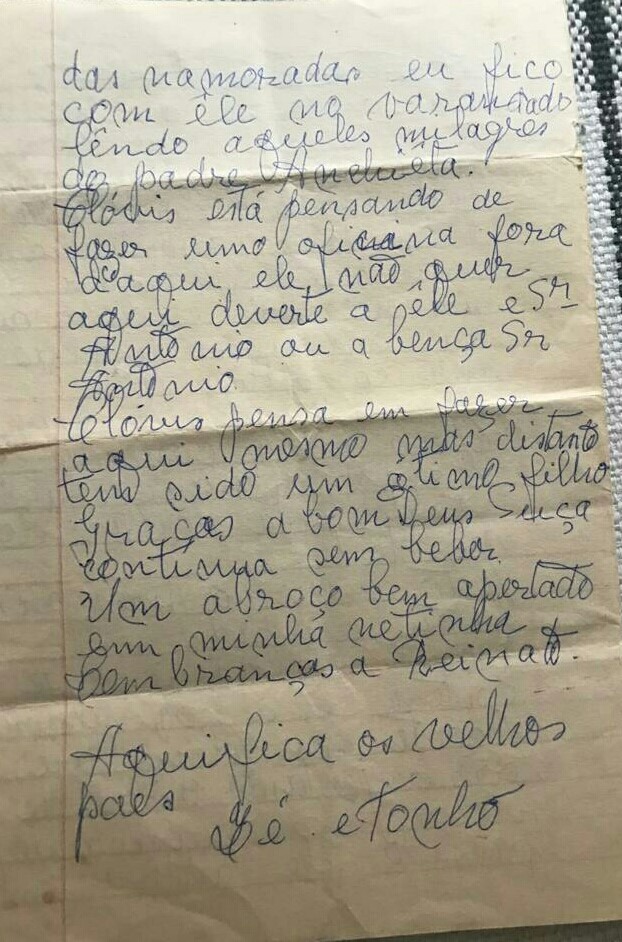 das namoradas eu fico
com êle no varandado
lêndo aqueles milagres
do padre Anchieta.
Clóvis está pensando de
fazer uma oficina fora
daqui ele não quer
aqui deverte a êle e Sr
Antonio ou a bença Sr
Antonio
Clóvis pensa em fazer
aqui mesmo mas distante
tem sido um otimo filho
Graças a bom Deus
continua sem beber.
Um abroço bem apertado
em minha netinha
lembranças a Reinato.
Aqui fica os velhos
paes
Zé e Tonho